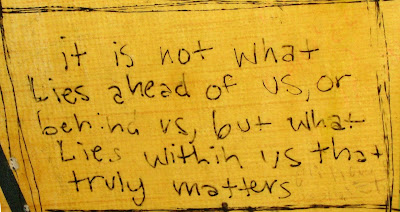 it is not what
Lies ahead of us, or
behind us, but what
Lies within us that
truly matters